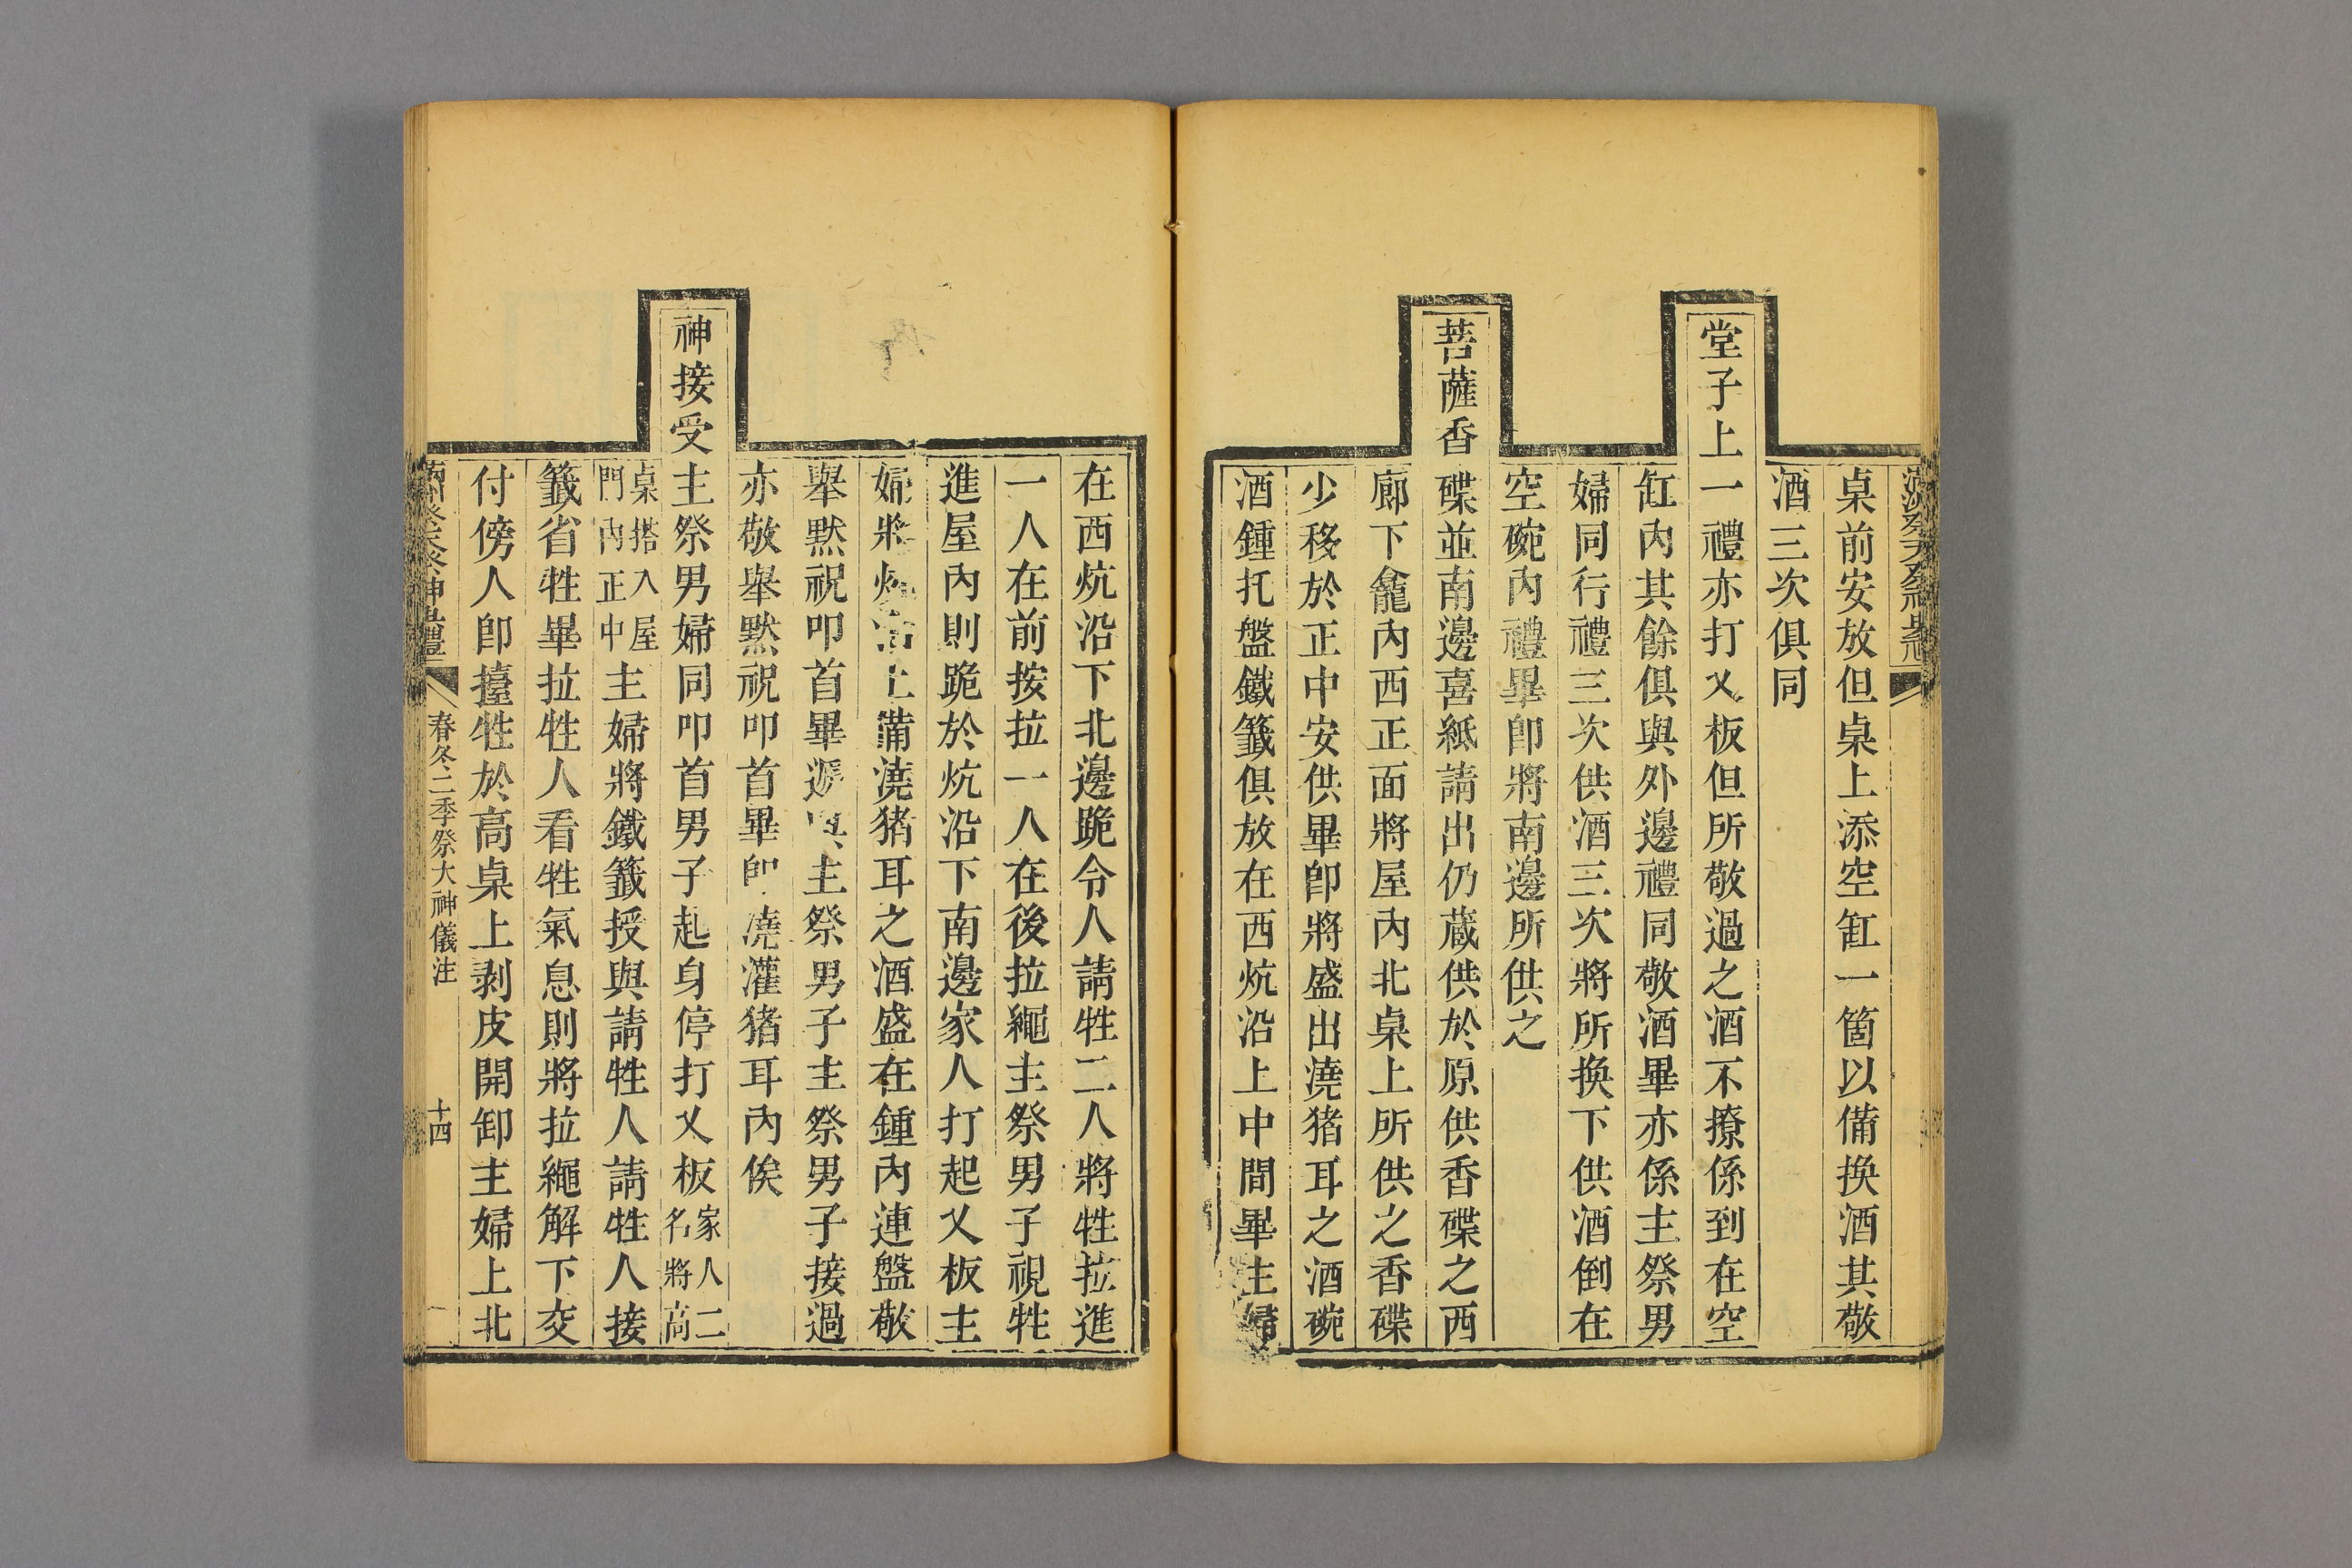 桌前安放但桌上添空缸一箇以備換酒其敬
酒三次俱同
堂子上一禮亦打乂板但所敬過之酒不撩係到在空
缸內其餘俱與外邊禮同敬酒畢亦係主祭男
婦同行禮三次供酒三次將所換下供酒倒在
空碗內禮畢卽將南邊所供之
菩薩香碟並南邊喜紙請出仍蔵供於原供香碟之西
廊下龕內西正面將屋內北桌上所供之香碟
少移於正中安供畢卽將盛出澆猪耳之酒碗
酒鍾托盤鐵籤俱放在西炕沿上中間畢主婦
在西炕沿下北邊跪令人請牲二人將牲拉進
一人在前按拉一人在後拉繩主祭男子視牲
進屋內則跪於炕沿下南邊家人打起乂板主
婦將炕沿上備澆猪耳之酒盛在鍾內連盤敬
舉黙祝叩首畢遞與主祭男子主祭男子接過
亦敬舉黙祝叩首畢卽澆灌猪耳內俟
神接受主祭男婦同叩首男子起身停打乂板家人二名將高
桌搭入屋門內正中主婦將鐵籤授與請牲人請牲人接
籤省牲畢拉牲人看牲氣息則將拉繩解下交
付傍人卽擡牲於高桌上剥皮開卸主婦上北
春冬二季祭大神儀注
十四